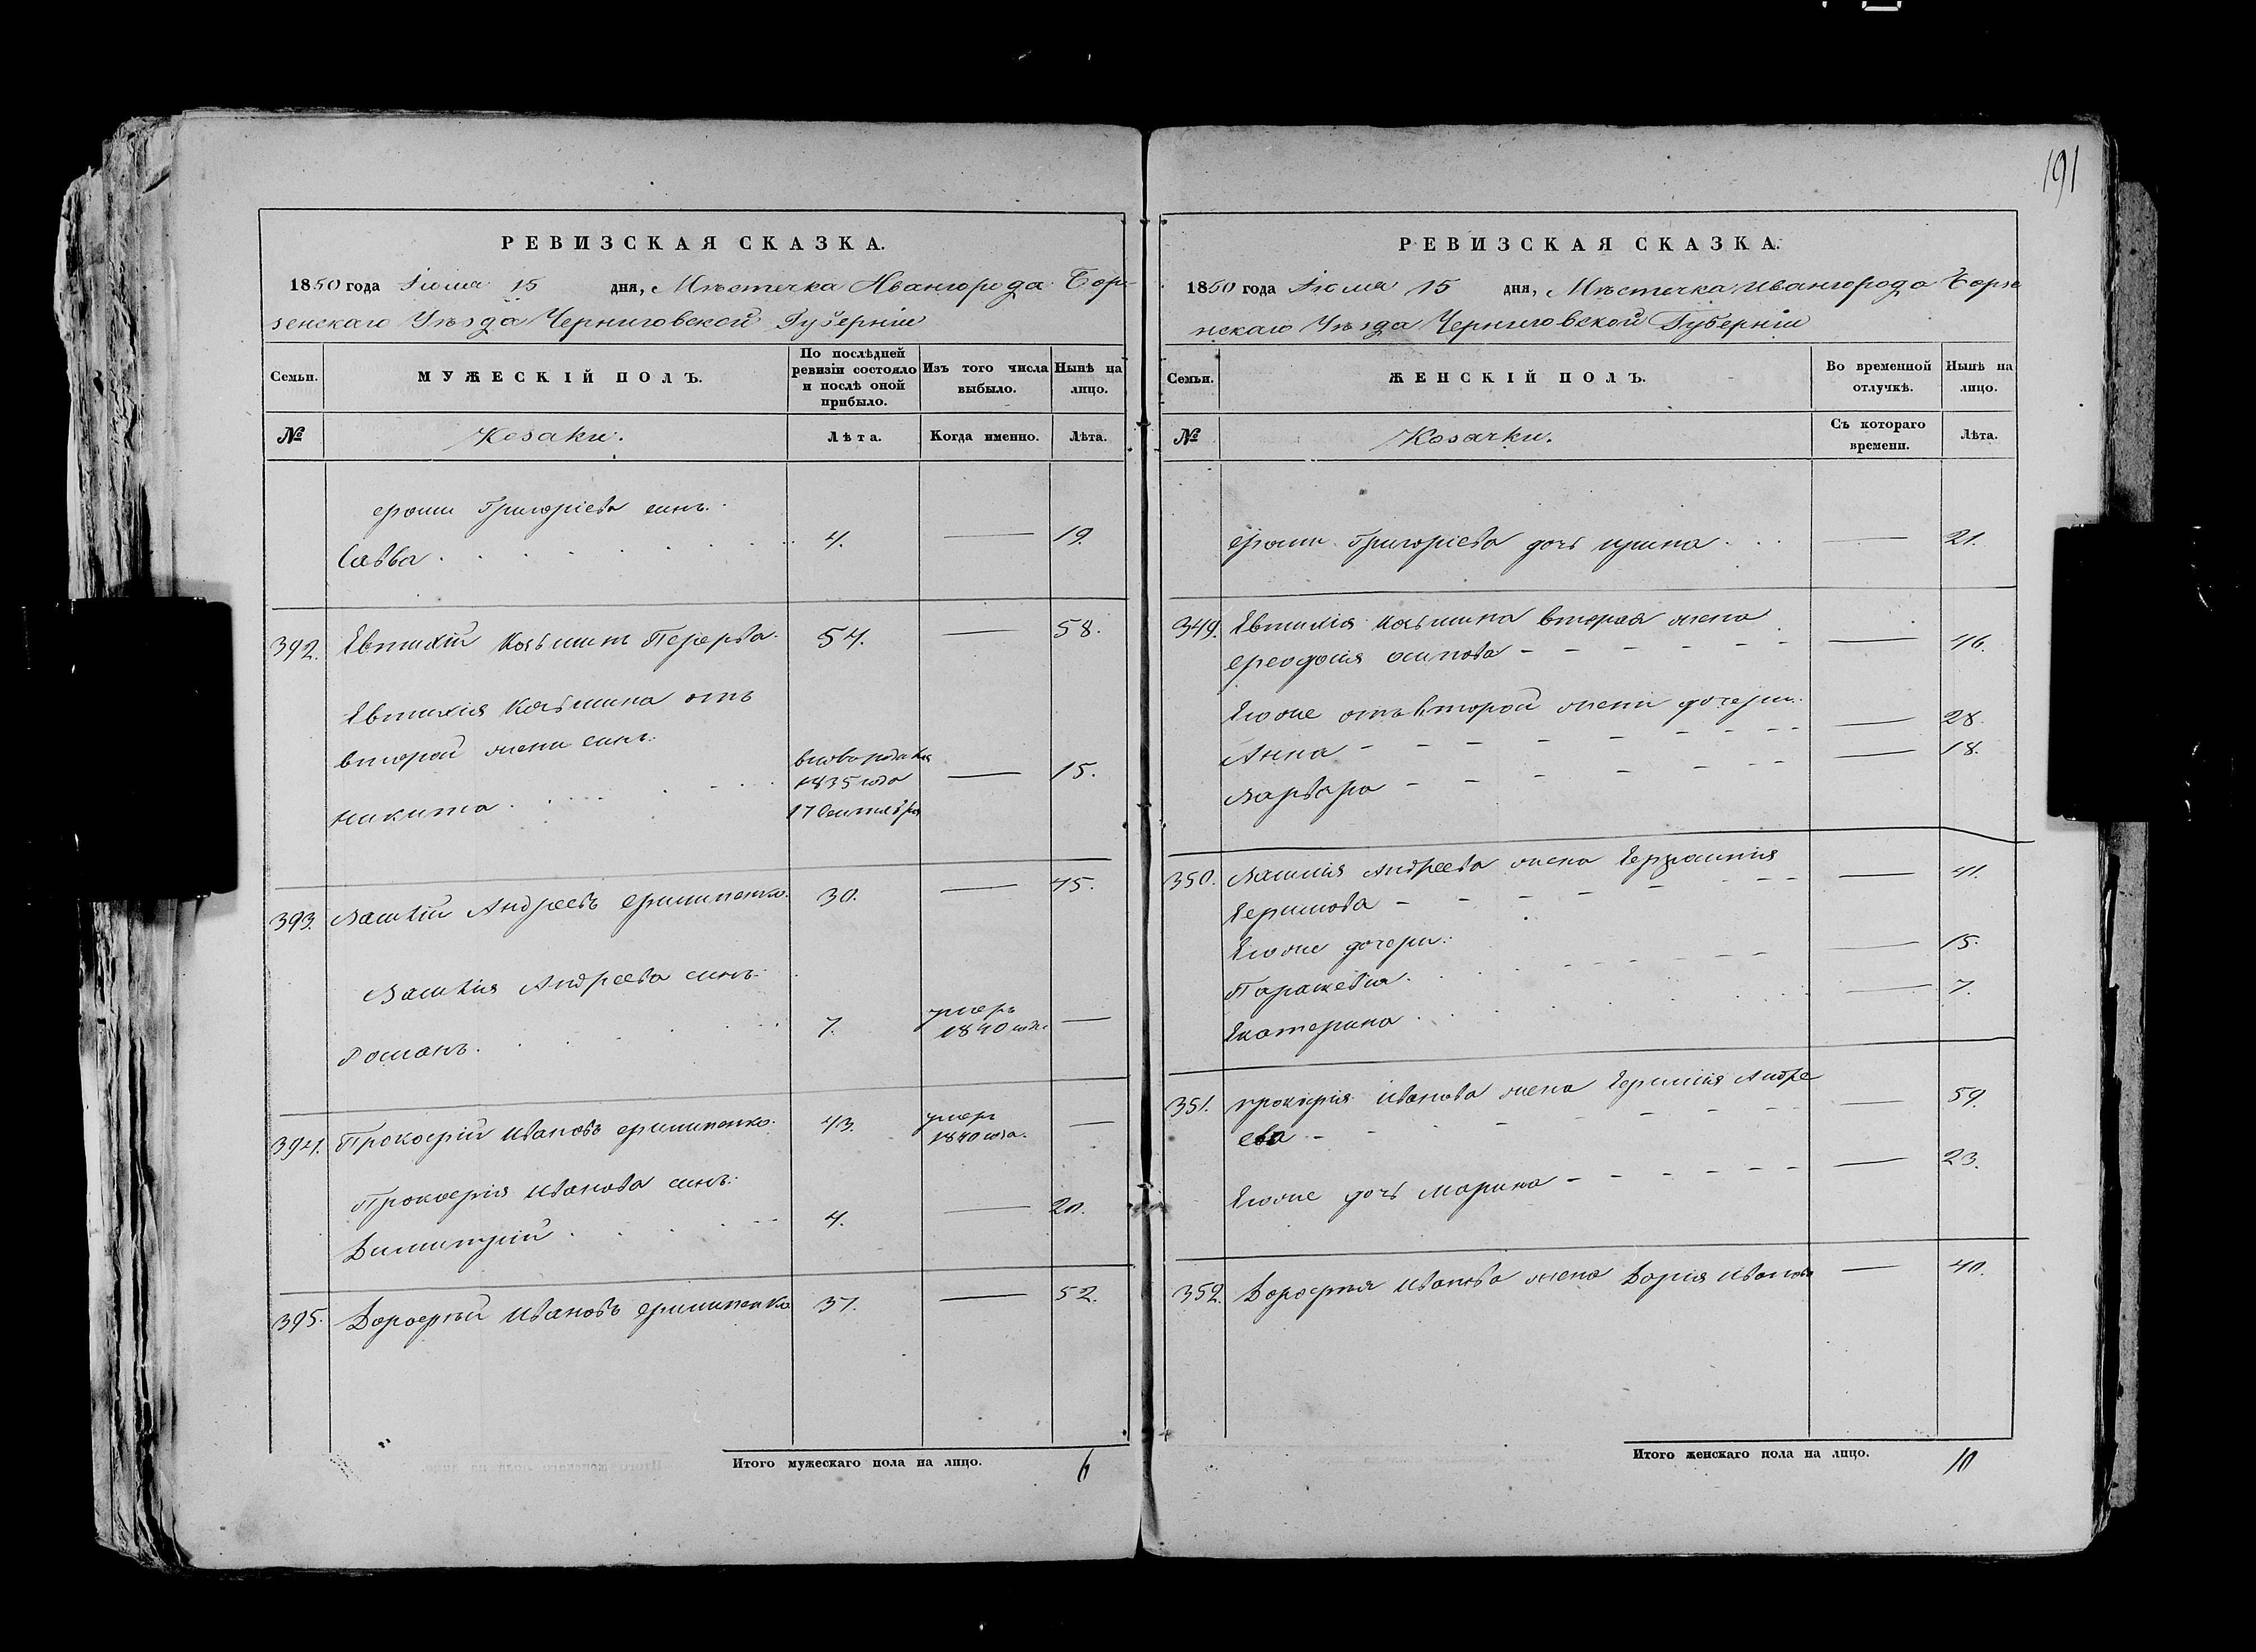 191
РЕВИЗСКАЯ СКАЗКА.
1850 года Іюля 15 дня, Мѣстечка Ивангорода Бор-
зенскаго Уѣзда Черниговской Губерніи
Семьи.
МУЖЕСКІЙ ПОЛЪ.
По послѣдней ревизіи состояло и послѣ оной прибыло.
Изъ того числа выбыло.
Нынѣ на лицо.
№
Козаки.
Лѣта.
Когда именно.
Лѣта.
Григорієва синъ.
Савва 4. 19.
392. Євтихій Козьминъ Перерва. 54. 58.
Євтихія Козьмина отъ
второй жени синъ:
Никита вновородився 1835 года 17 Сентября 15.
393. Василій Андреевъ Филипенко. 30. 45.
Василія Андреева синъ:
Романъ. 7. умеръ 1840 года.
394. Прокофій Ивановъ Филипенко. 43. умеръ 1840 года.
Прокофія Иванова синъ:
Димитрій 4. 20.
395. Дорофѣй Ивановъ Филипенко 37. 52.
Итого мужескаго пола на лицо. 6
РЕВИЗСКАЯ СКАЗКА.
1850 года Іюля 15 дня, Мѣстечка Ивангорода Борзе
нскаго Уѣзда Черниговской Губерніи
Семьи.
ЖЕНСКІЙ ПОЛЪ.
Во временной отлучкѣ.
Нынѣ на лицо.
№
Козачки.
Съ котораго времени.
Лѣта.
Григорієва дочь Ирина 21.
349. Євтихія Козьмина вторая жена
Феодосія Осипова 46.
Єгоже отъ второй жени дочери:
Анна 28.
Варвара 18.
350. Василія Андреева жена Євфросинія
41.
Єгоже дочери:
Параскевія. 15.
Єкатерина 7.
351. Прокофія Иванова жена Андре
ева 59.
Єгоже дочь Марина 23.
352. Дорофѣя Иванова жена Дарія Иванова 40.
Итого женскаго пола на лицо. 10